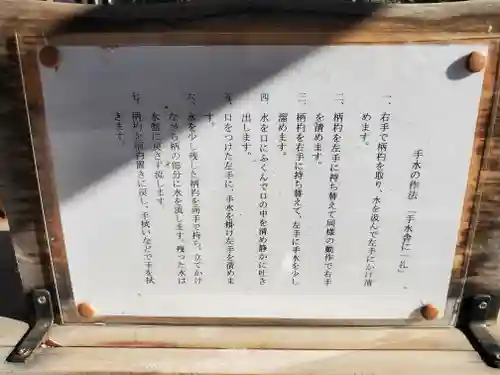 手水の作法 「手水舎に一礼」
一、右手で柄杓を取り、水を汲んで左手にかけ清
めます。
二、柄杓を左手に持ち替えて同様の動作で右手
を清めます。
三、柄杓を右手に持ち替えて、左手に手水を少し
溜めます。
四、水を口にふくんで口の中を清め静かに吐き
出します。
五、口をつけた左手に、手水を掛け左手を清めま
す。
六、水を少し残した柄杓を両手で持ち、立てかけ
ながら柄の部分に水を流します。残った水は
水盤に戻さず流します。
七、柄杓を柄杓置きに戻し、手拭いなどで手を拭
きます。